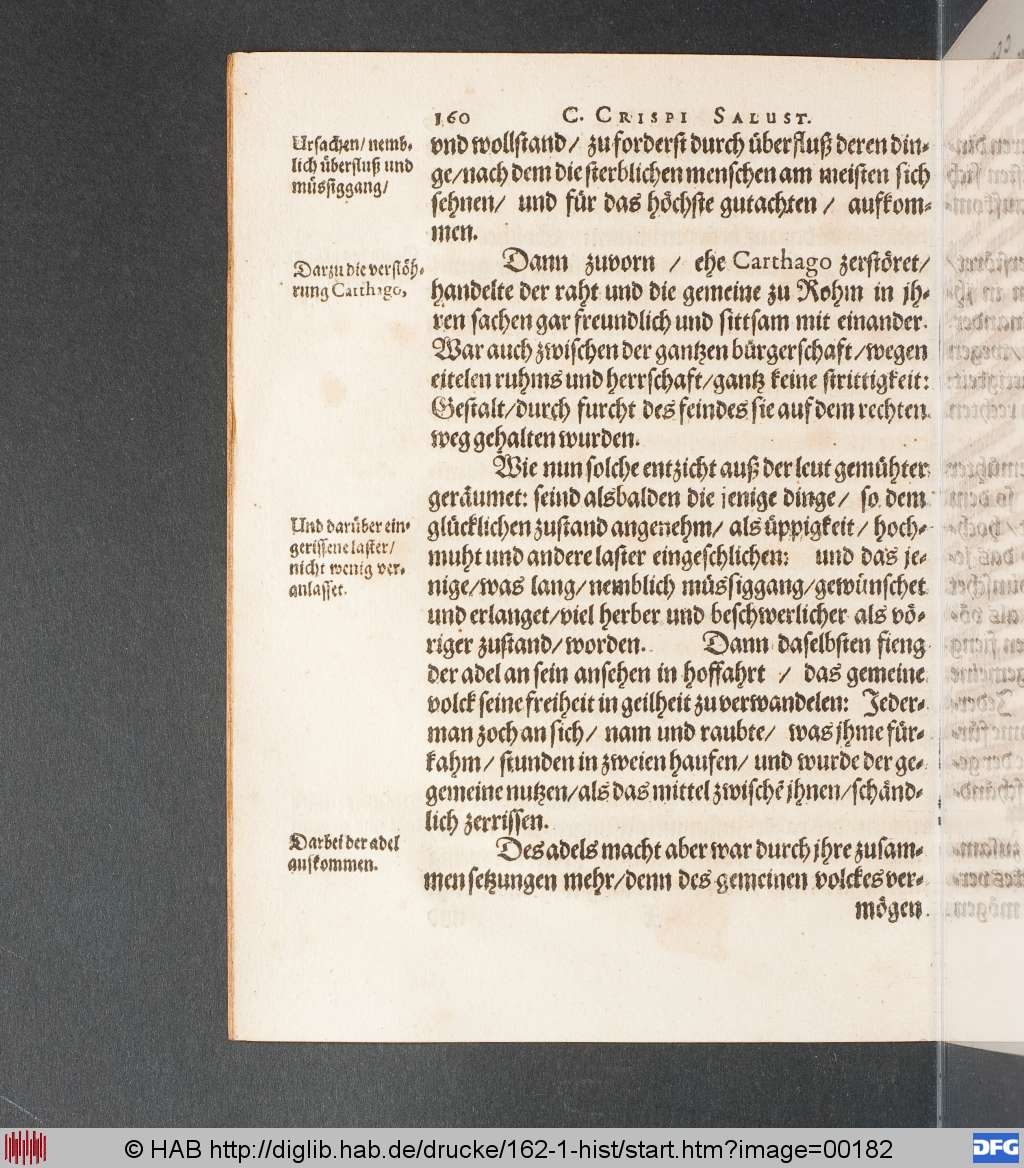 160 C. CRISPI SALUST.
Ursachen/ nemb-
lich überfluß und
müssiggang/
vnd wollstand/ zu forderst durch überfluß deren din-
ge/nach dem die sterblichen menschen am meisten sich
sehnen/ und für das höchste gutachten/ aufkom-
men.
Darzu die verstöh-
rung Carthago,
Dann zuvorn / ehe Carthago zerstöret/
handelte der raht und die gemeine zu Rohm in jh-
ren sachen gar freundlich und sittsam mit einander.
War auch zwischen der gantzen bürgerschaft/wegen
eitelen ruhms und herrschaft/gantz keine strittigkeit:
Gestalt/durch furcht des feindes sie auf dem rechten
weg gehalten wurden.
Wie nun solche entzicht auß der leut gemühter
geräumet: seind alsbalden die jenige dinge/ so dem
Und darüber ein-
gerissene laster/
nicht wenig ver-
anlasset.
glücklichen zustand angenehm/ als üppigkeit/ hoch-
muht und andere laster eingeschlichen: und das je-
nige/was lang/nemblich müssiggang/gewünschet
und erlanget/viel herber und beschwerlicher als vö-
riger zustand/worden. Dann daselbsten fieng
der adel an sein ansehen in hoffahrt / das gemeine
volck seine freiheit in geilheit zu verwandelen: Jeder-
man zoch an sich/ nam und raubte/ was jhme für-
kahm/ stunden in zweien haufen/ und wurde der ge-
gemeine nutzen/als das mittel zwischē jhnen/schänd-
lich zerrissen.
Darbei der adel
aufkommen.
Des adels macht aber war durch jhre zusam-
men setzungen mehr/denn des gemeinen volckes ver-
mögen
© HAB http://diglib.hab.de/drucke/162-1-hist/start.htm?image=00182
DFG